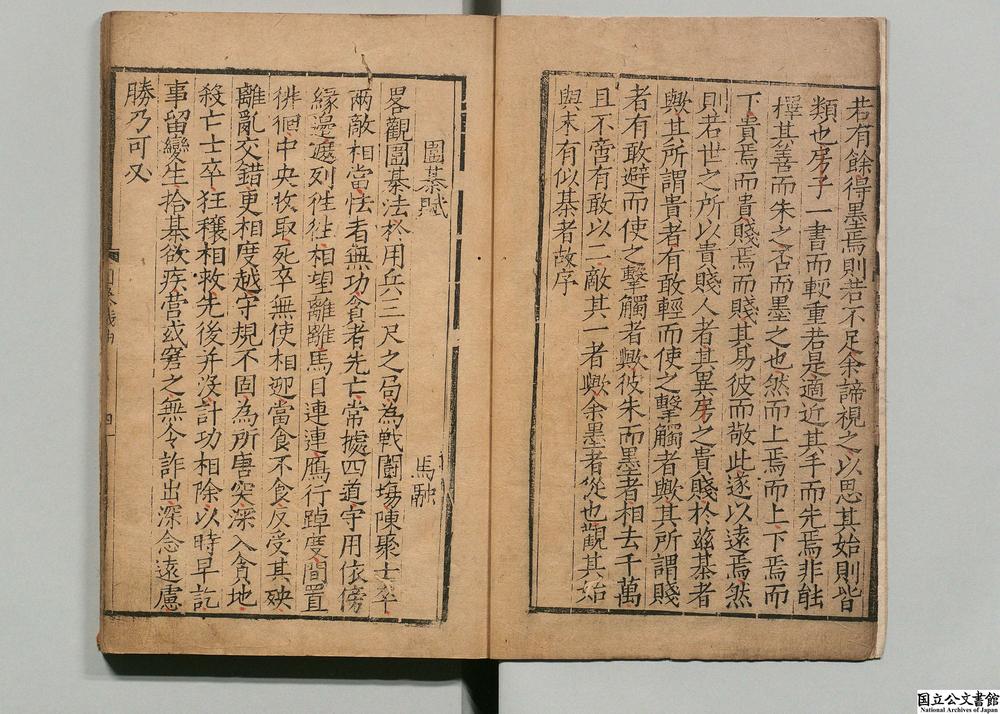 若有餘得墨焉則若不足余諦視之以思其始則皆
類也房子一書而輕重若是適近其手而先焉非能
擇其善而朱之否而墨之也然而上焉而上下焉而
下貴焉而貴賤焉而賤其易彼而敬此遂以遠焉然
則若世之所以貴賤人者其異房之貴賤於兹棊者
歟其所謂貴者有敢輕而使之擊觸者歟其所謂賤
者有敢避而使之擊觸者歟彼朱而墨者相去千萬
且不啻有敢以二敵其一者歟余墨者從也觀其始
與末有似棊者故序
圍棊賦
馬融
畧觀圍棊法於用兵三尺之局為戰鬪塲陳聚士卒
兩敵相當怯者無功貪者先亡常據四道守用依傍
緣邊遮列往往相望離離馬目連連鴈行踔度間置
徘徊中央收取死卒無使相迎當食不食反受其殃
離亂交錯更相度越守規不固為所唐突深入貪地
殺亡士卒狂穰相救先後并没計功相除以時早訖
事留變生拾棊欲疾营或窘之無令詐出深念遠慮
勝乃可又
四
国立公文書館
National Archives of Japan